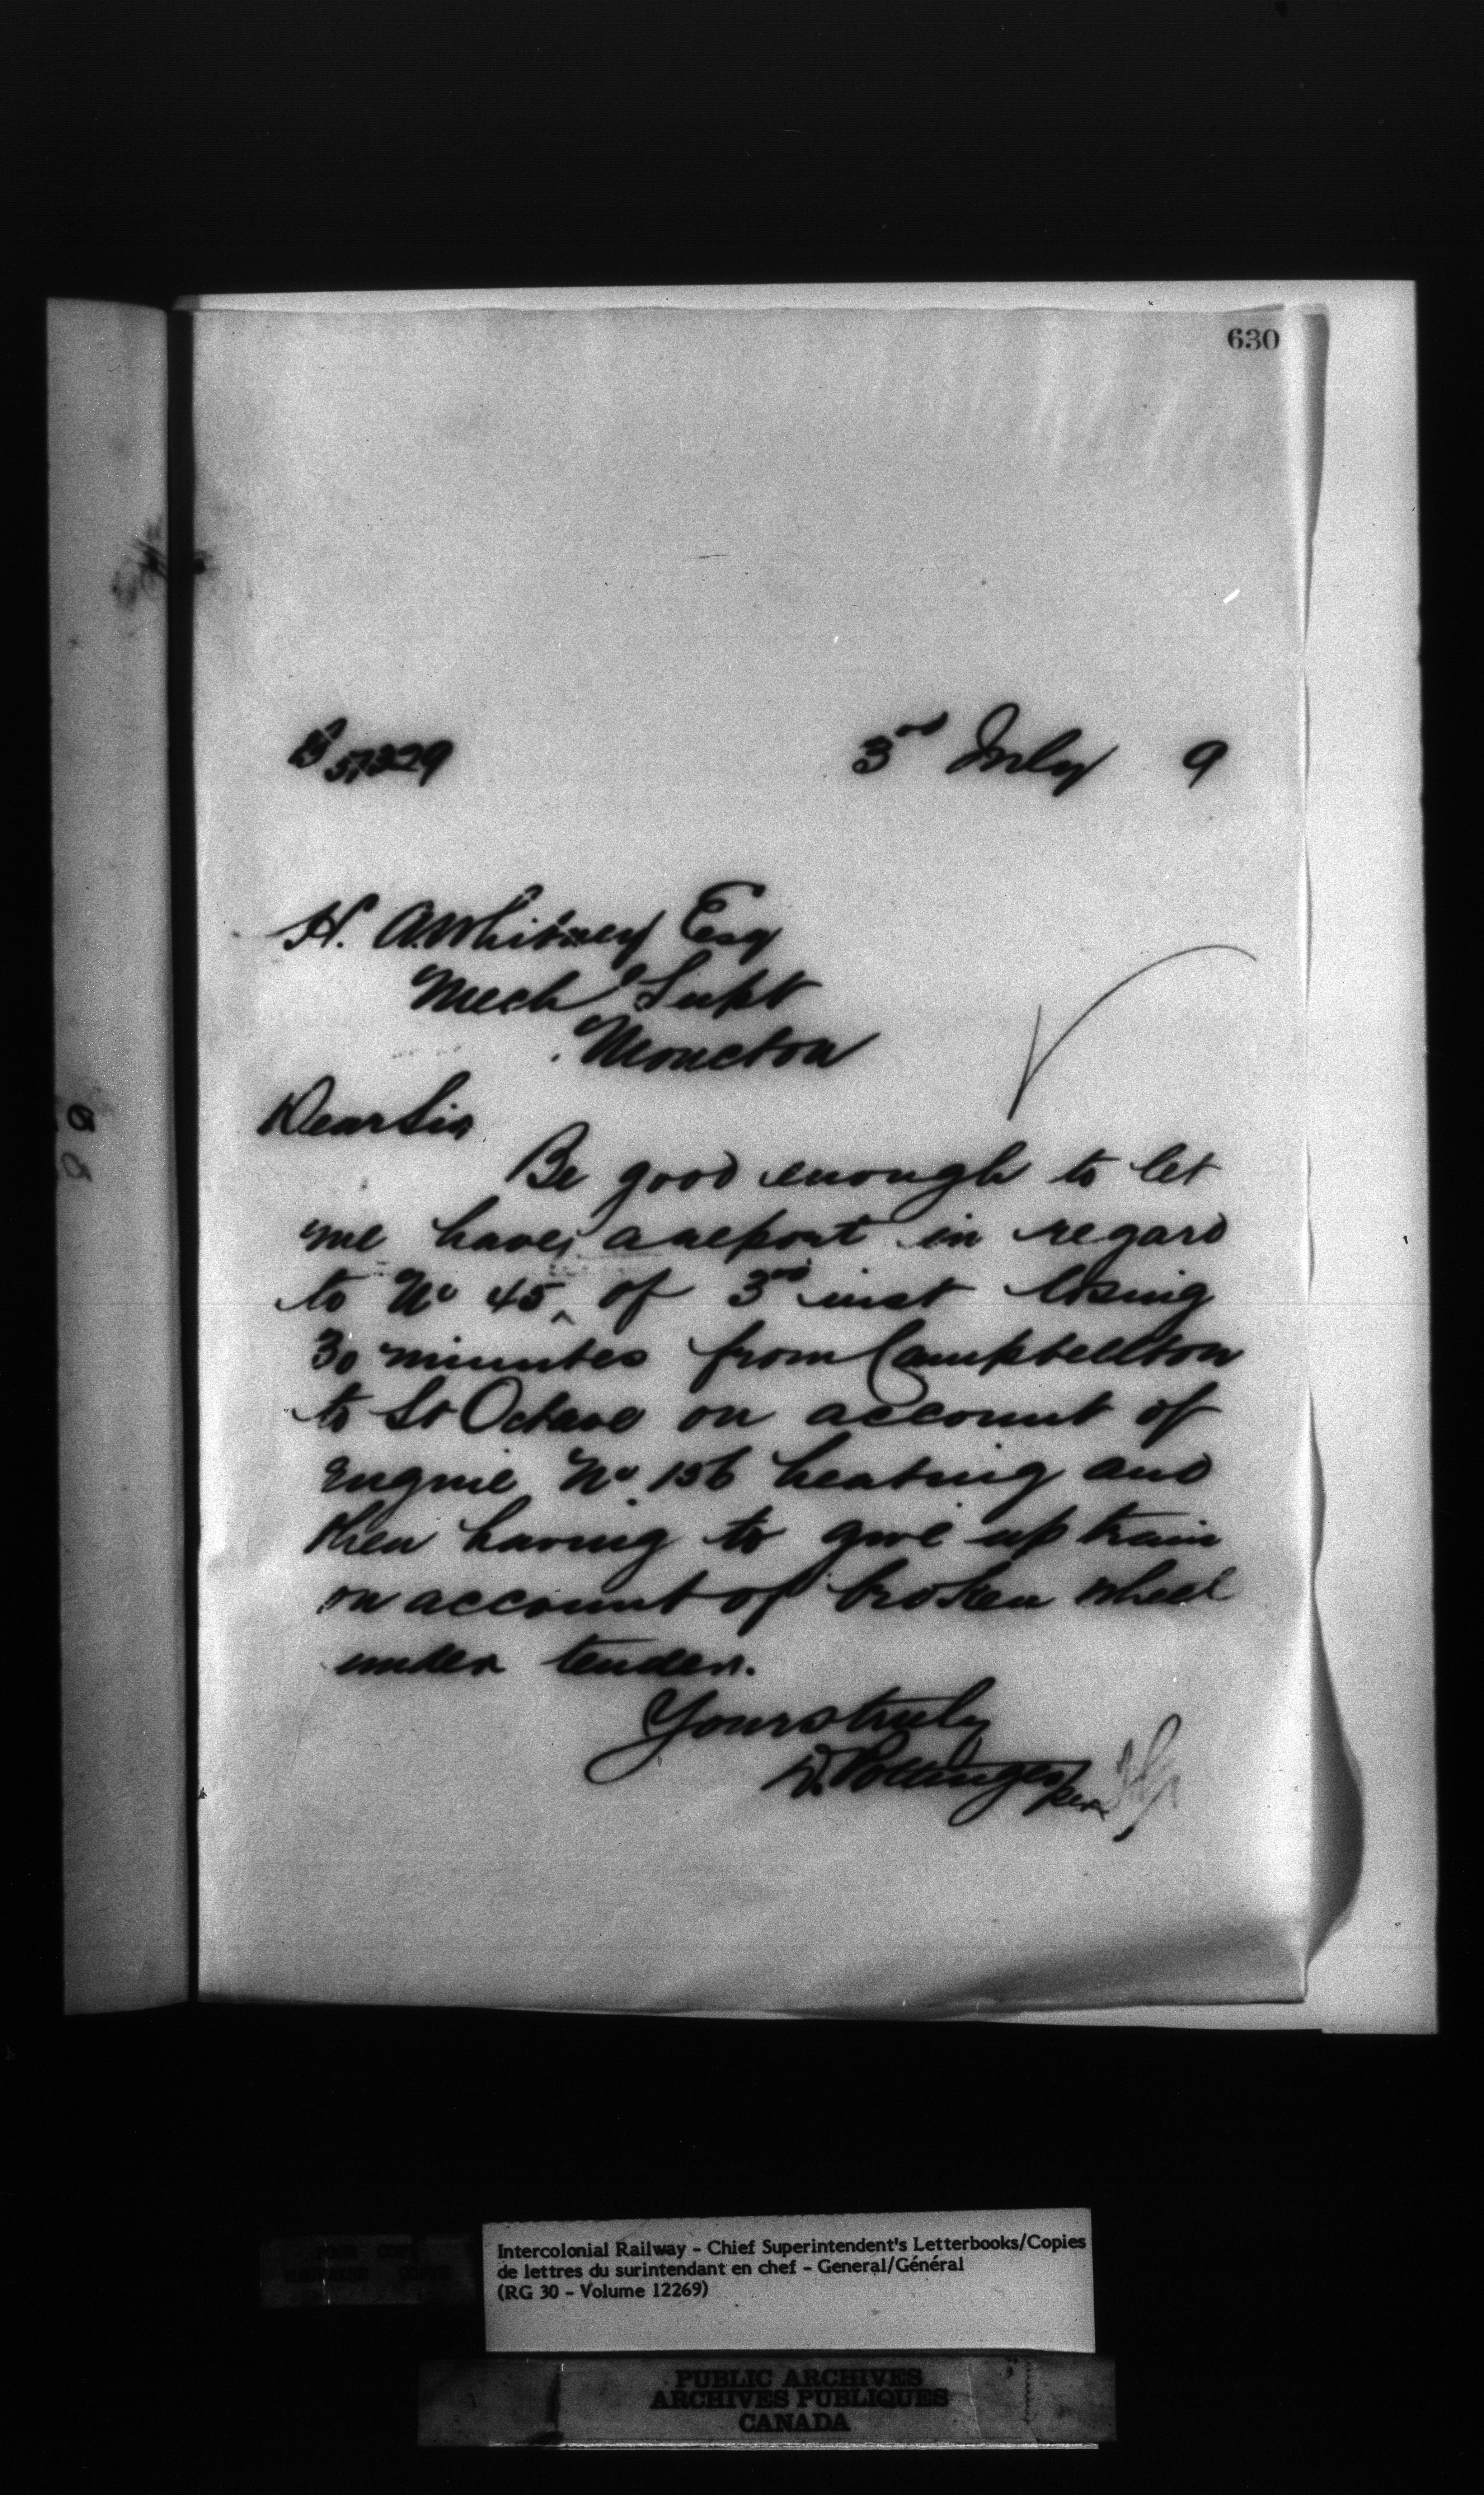 630
57329
3rd July 9
H. A. Whitney Esq
Mech Supt
Moncton
Dear Sir
Be good enough to let
me have a report in regard
to No 45 of 3rd inst losing
30 minutes from Campbellton
to St Octave on account of
Engine No 156 heating and
then having to give up train
on account of broken wheel
under tender.
Yours truly
D. Pottinger
per
Intercolonial Railway - Chief Superintendent's Letterbooks/Copies
de lettres du surintendant en chef - General/Général
(RG 30 - Volume 12269)
PUBLIC ARCHIVES
ARCHIVES PUBLIQUES
CANADA